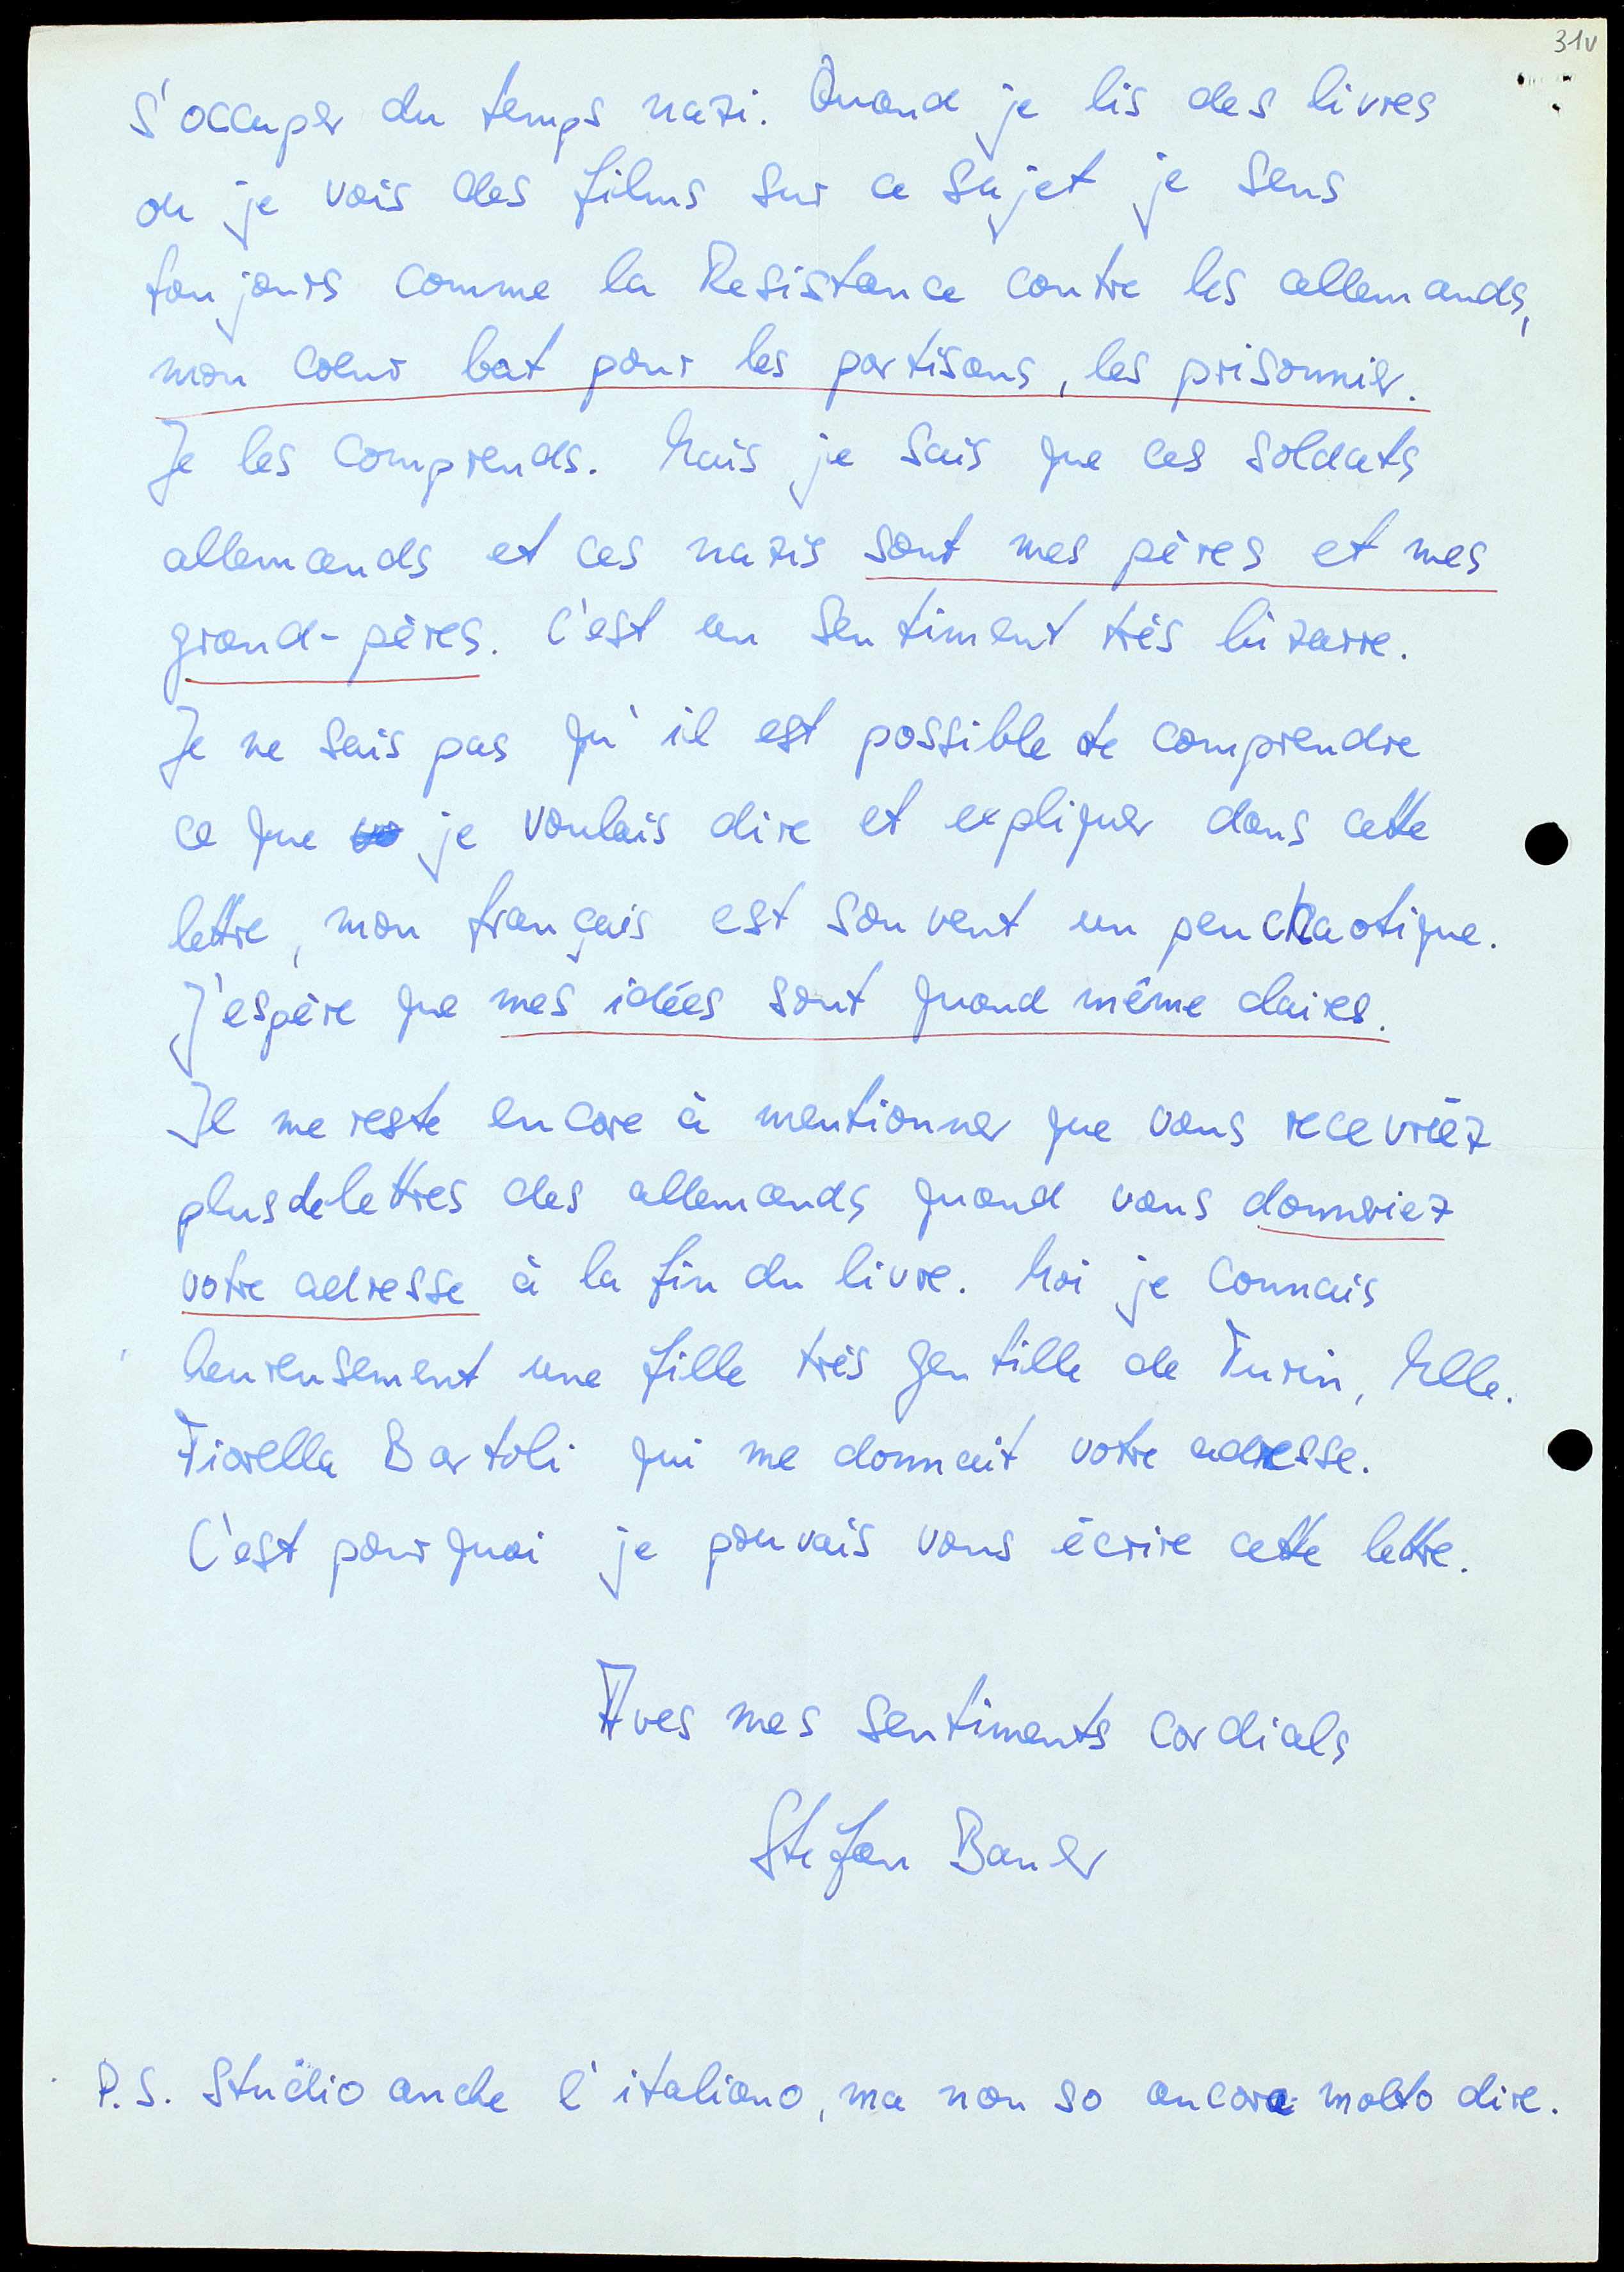 31v
s'occuper du temps nazi. Quand je lis des livres
ou je vois des films sur ce sujet je sens
toujours comme la Resistance contre les allemands,
mon coeur bat pour les partisans, les prisonnier.
Je les comprends. Mais je sais que ces soldats
allemands et ces nazis sont mes pères et mes
grand-pères. C'est un sentiment très bizarre.
Je ne sais pas qu'il est possible de comprendre
ce que je voulais dire et expliquer dans cette
lettre, mon français est souvent un peu chaotique.
J'espère que mes idées sont quand même claires.
Il me reste encore à mentionner que vous recevriez
plus de lettres des allemands quand vous donneriez
votre adresse à la fin du livre. Moi je connais
heureusement une fille très gentille de Turin, Mlle.
Fiorella Bartoli qui me donnait votre adresse.
C'est pourquoi je pouvais vous écrire cette lettre.
Aves mes sentiments cordials
Stefan Bauer
P.S. Studio anche l'italiano, ma non so ancora molto dire.